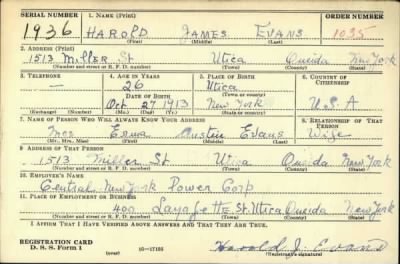 SERIAL NUMBER 1. NAME (Print) ORDER NUMBER
1936 HAROLD JAMES EVANS 1035
(First) (Middle) (Last)
2. ADDRESS (Print)
1513 Miller St Utica Oneida New York
(Number and street or R. F. D. number) (Town) (County) (State)
3. TELEPHONE 4. AGE IN YEARS 5. PLACE OF BIRTH 6. COUNTRY OF CITIZENSHIP
— 26 Utica
DATE OF BIRTH (Town or county)
Oct 27 1913 New York U.S.A
(Exchange) (Number) (Mo.) (Day) (Yr.) (State or country)
7. NAME OF PERSON WHO WILL ALWAYS KNOW YOUR ADDRESS 8. RELATIONSHIP OF THAT PERSON
Mrs Austin Evans Wife
(Mr., Mrs., Miss) (First) (Middle) (Last)
9. ADDRESS OF THAT PERSON
1513 Miller St Utica Oneida New York
(Number and street or R. F. D. number) (Town) (County) (State)
10. EMPLOYER'S NAME
Central New York Power Corp
11. PLACE OF EMPLOYMENT OR BUSINESS
400 Lafayette St. Utica Oneida New York
(Number and street or R. F. D. number) (Town) (County) (State)
I AFFIRM THAT I HAVE VERIFIED ABOVE ANSWERS AND THAT THEY ARE TRUE.
REGISTRATION CARD
D. S. S. Form 1 16—17105 Harold J. Evans
(over) (Registrant's signature)